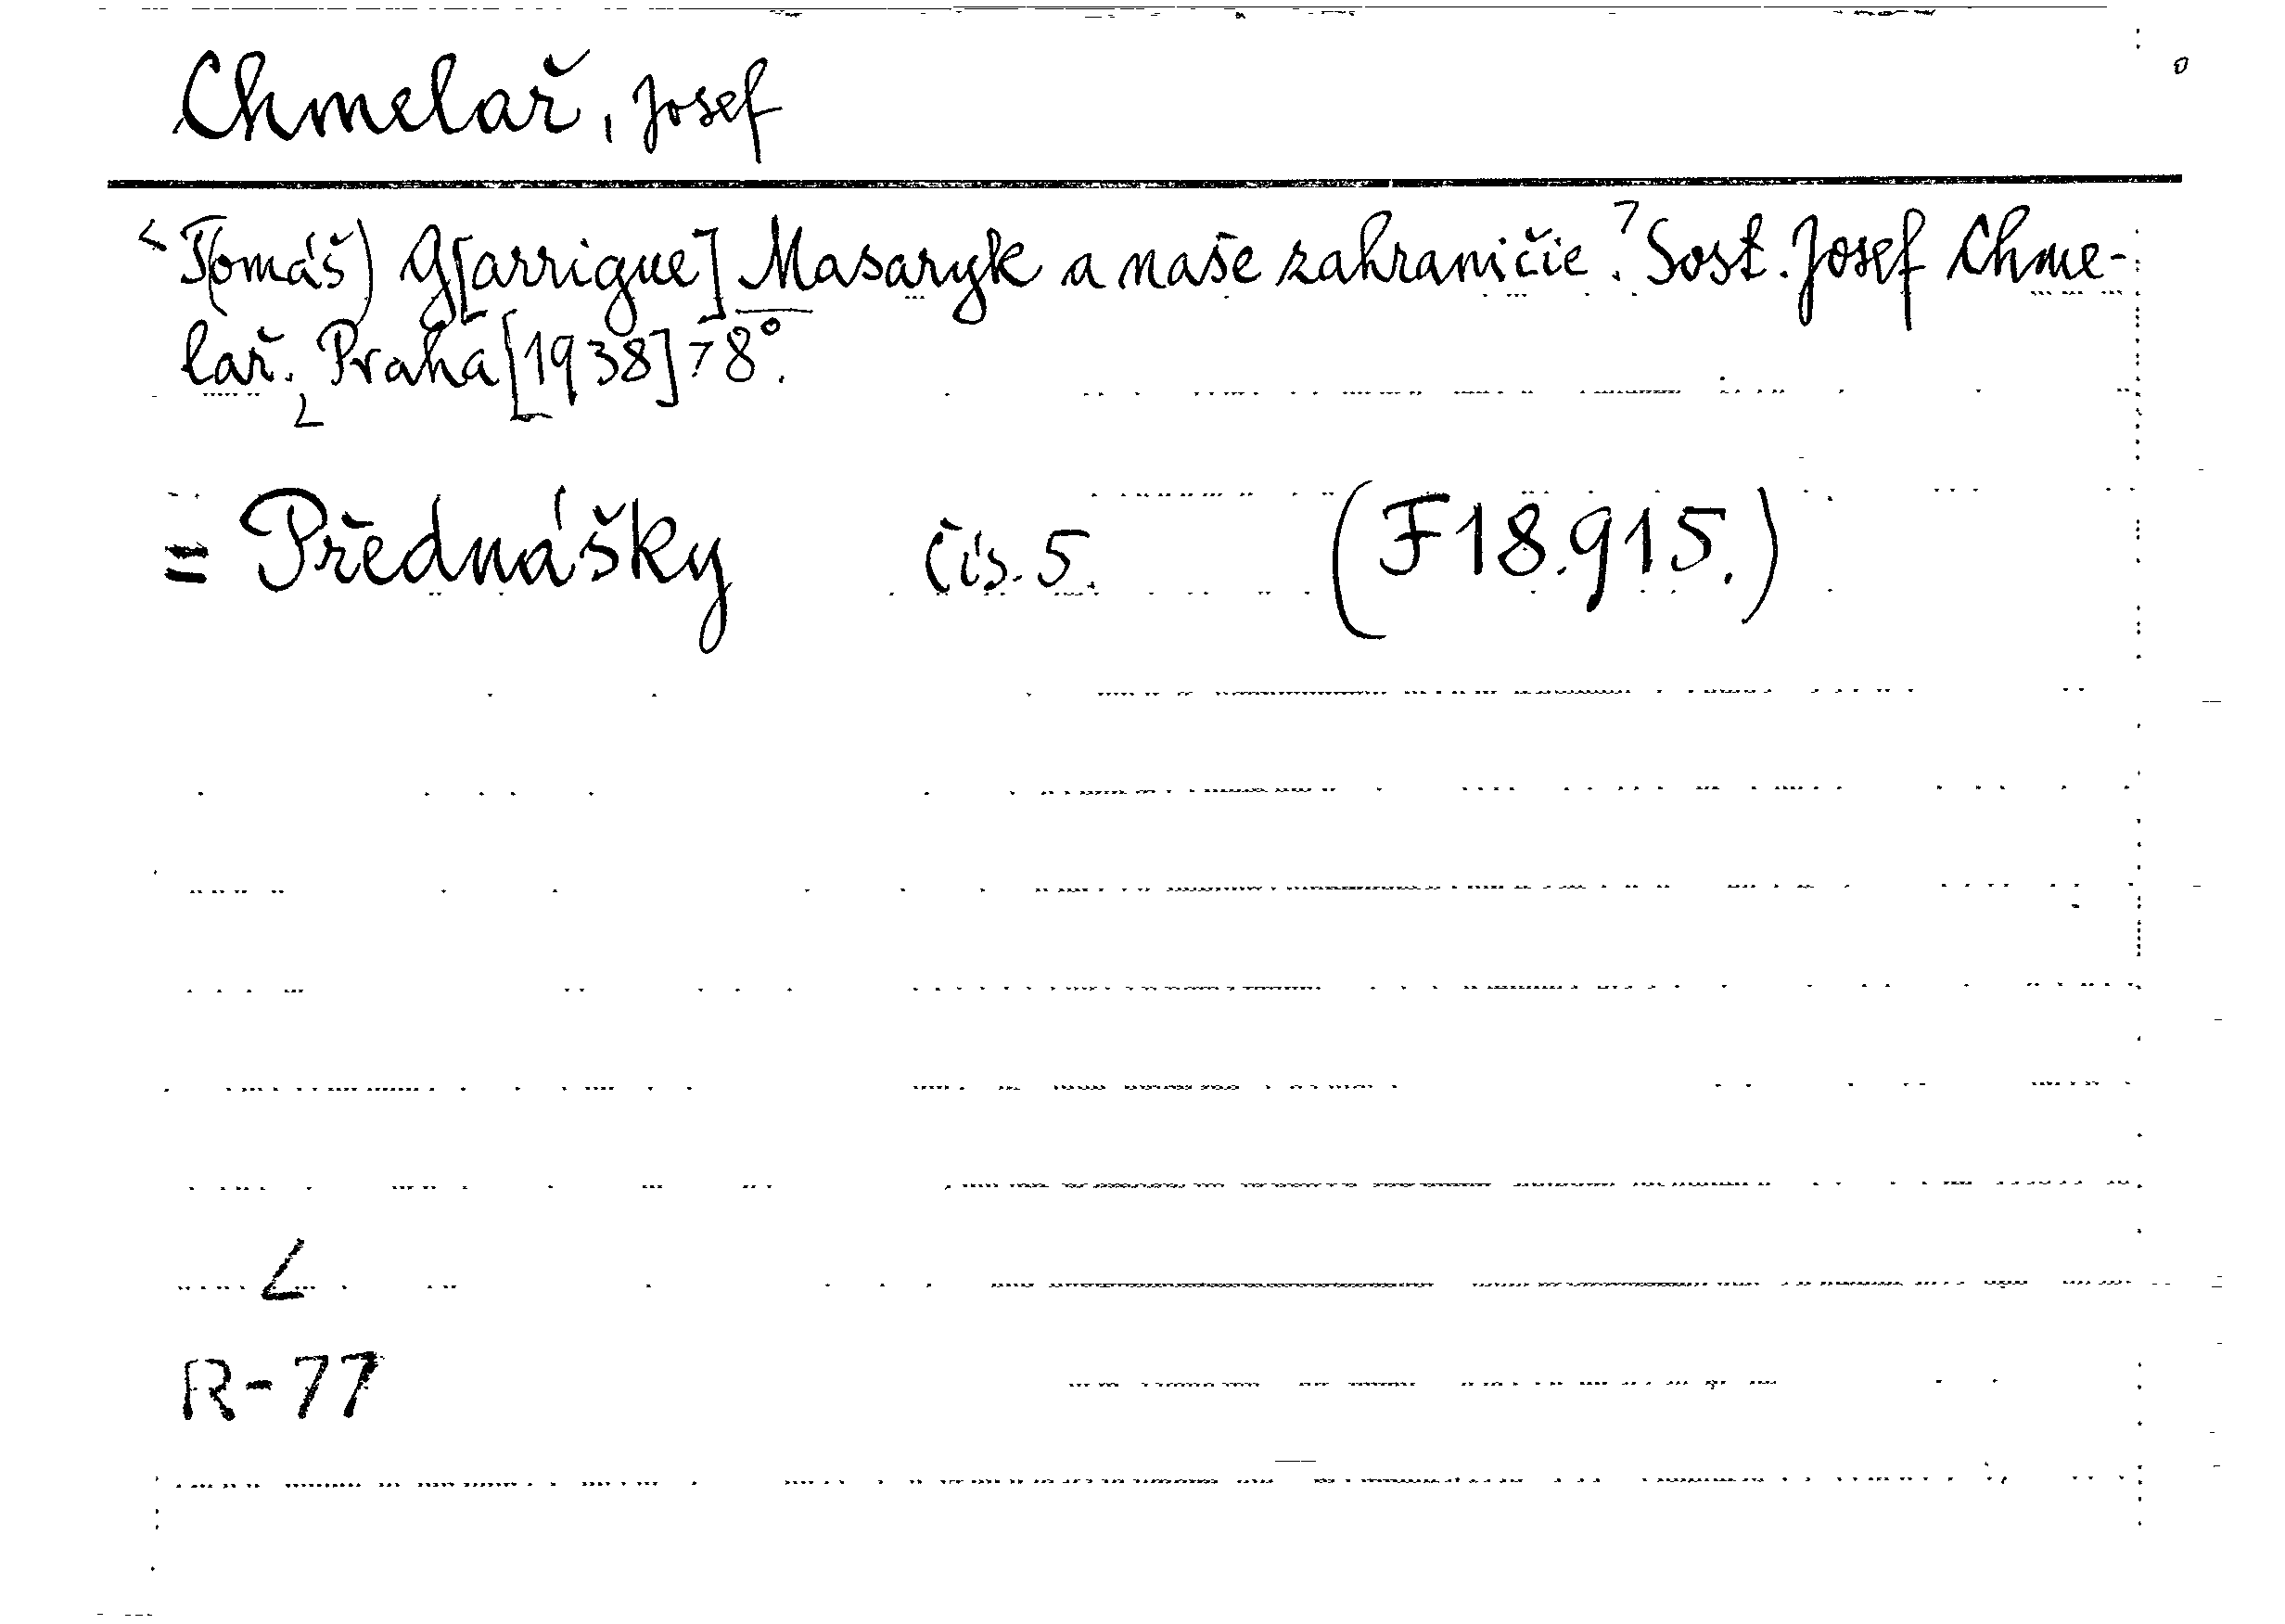 Chmelař, Josef
T(omáš) G[arrigue] Masaryk a naše zahraničie. Sost. Josef Chme-
lař. Praha [1938] 8°.
= Přednášky čís. 5. (F 18.915.)
L
R-77